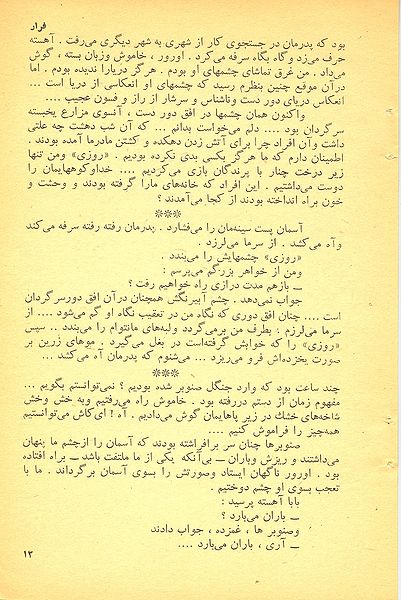 فرار
بود که پدرمان در جستجوی کار از شهری به شهر دیگری می‌رفت . آهسته
حرف می‌زد و گاه بگاه سرفه می‌کرد . اورور ، خاموش و زبان بسته ، گوش
می‌داد . من غرق تماشای چشمهای او بودم . هرگز دریا را ندیده بودم . اما
در آن موقع چنین بنظرم رسید که چشمهای او انعکاسی از دریا است ...
انعکاس دریای دور دست و ناشناس و سرشار از راز و فسون عجیب ....
و اکنون همان چشمها در افق دور دست ، آنسوی مزارع یخبسته
سرگردان بود .... دلم می‌خواست بدانم ... که آن شب دهشت چه علتی
داشت و آن افراد چرا برای آتش زدن دهکده و کشتن مادر ما آمده بودند .
اطمینان دارم که ما هرگز بکسی بدی نکرده بودیم . «روزی» و من تنها
زیر درخت چنار با پرندگان بازی می‌کردیم .... خداوکوههایمان را
دوست می‌داشتیم . این افراد که خانه‌های ما را گرفته بودند و وحشت و
خون براه انداخته بودند از کجا می‌آمدند ؟
***
آسمان پست سینه‌مان را می‌فشارد . پدرمان رفته رفته سرفه می‌کند
و آه می‌کشد . از سرما می‌لرزد .
«روزی» چشمهایش را می‌بندد .
و من از خواهر بزرگم می‌پرسم :
ـ باز هم مدت درازی راه خواهیم رفت ؟
جواب نمی‌دهد . چشم آبیرنگش همچنان در آن افق دور سرگردان
است .... چنان افق دوری که نگاه من در تعقیب نگاه او گم می‌شود .... از
سرما می‌لرزم . بطرف من برمی‌گردد و لبه‌های مانتوام را می‌بندد .. سپس
«روزی» را که خوابش گرفته‌است در بغل می‌گیرد . موهای زرین بر
صورت یخزده‌اش فرو می‌ریزد ... می‌شنوم که پدرمان آه می‌کشد ...
***
چند ساعت بود که وارد جنگل صنوبر شده بودیم ؟ نمی‌توانستم بگویم ...
مفهوم زمان از دستم در رفته بود . خاموش راه می‌رفتیم و به خش وخش
شاخه‌های خشك در زیر پاهایمان گوش می‌دادیم . آه ! ای‌کاش می‌توانستیم
همه‌چیز را فراموش کنیم ....
صنوبرها چنان سر برافراشته بودند که آسمان را از چشم ما پنهان
می‌داشتند و ریزش و باران ـ بی‌آنکه یکی از ما ملتفت باشد ـ براه افتاده
بود . اورور ناگهان ایستاد و صورتش را بسوی آسمان برگرداند . ما با
تعجب بسوی او چشم دوختیم .
بابا آهسته پرسید :
ـ باران می‌بارد ؟
و صنوبر ها ، غمزده ، جواب دادند
ـ آری ، باران می‌بارد ....
۱۳